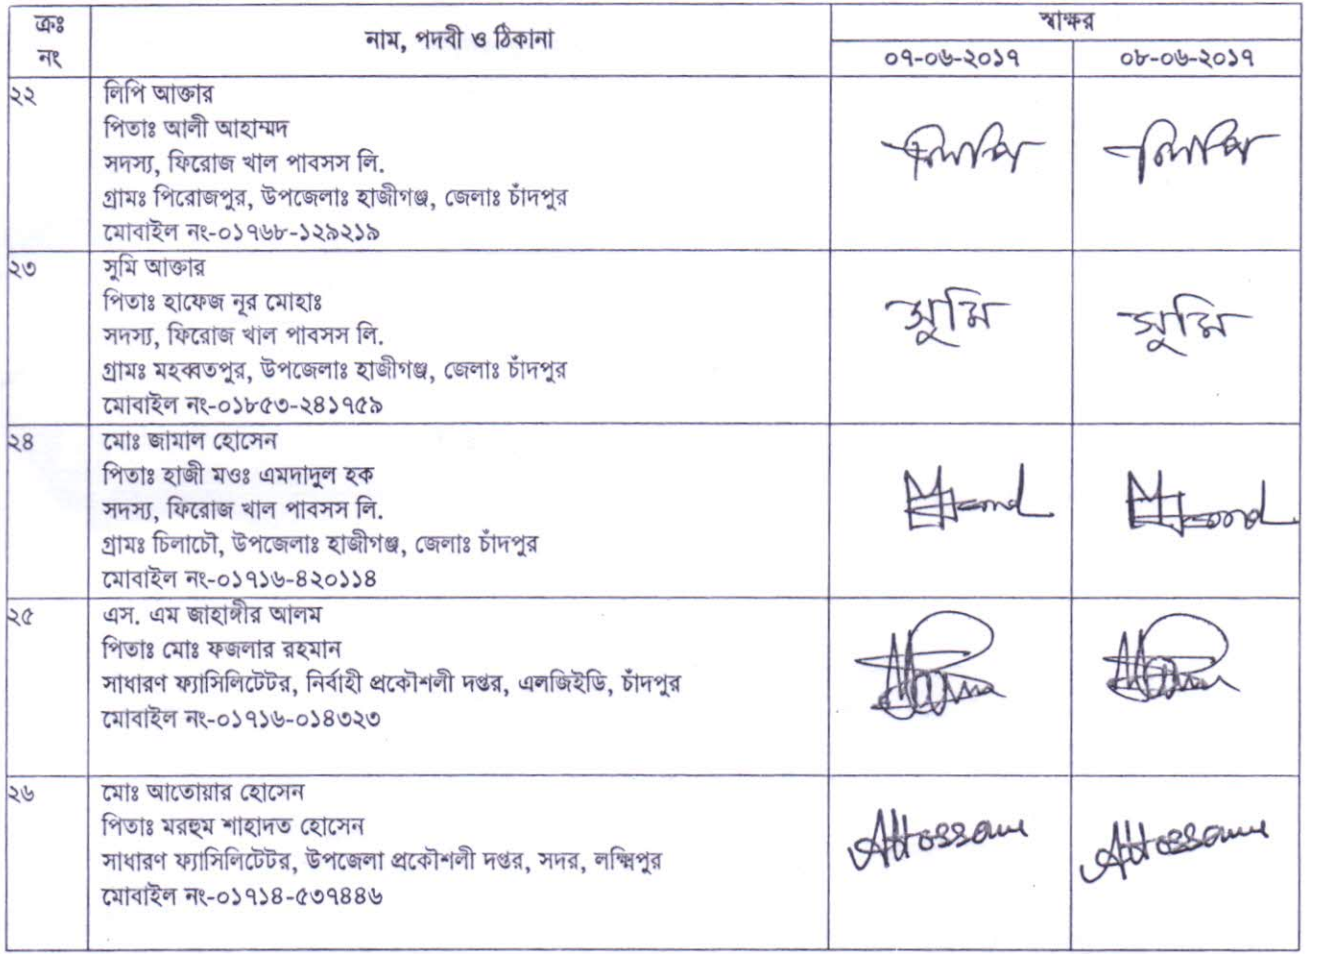 ক্রঃ নং নাম, পদবী ও ঠিকানা স্বাক্ষর
০৭-০৬-২০১৭ ০৮-০৬-২০১৭
২২ লিপি আক্তার
পিতাঃ আলী আহাম্মদ
সদস্য, ফিরোজ খাল পাবসস লি.
গ্রামঃ পিরোজপুর, উপজেলাঃ হাজীগঞ্জ, জেলাঃ চাঁদপুর
মোবাইল নং-০১৭৬৮-১২৯২১৯
লিপি লিপি
২৩ সুমি আক্তার
পিতাঃ হাফেজ নূর মোহাঃ
সদস্য, ফিরোজ খাল পাবসস লি.
গ্রামঃ মহব্বতপুর, উপজেলাঃ হাজীগঞ্জ, জেলাঃ চাঁদপুর
মোবাইল নং-০১৮৫৩-২৪১৭৫৯
সুমি সুমি
২৪ মোঃ জামাল হোসেন
পিতাঃ হাজী মওঃ এমদাদুল হক
সদস্য, ফিরোজ খাল পাবসস লি.
গ্রামঃ চিলাচৌ, উপজেলাঃ হাজীগঞ্জ, জেলাঃ চাঁদপুর
মোবাইল নং-০১৭১৬-৪২০১১৪
২৫ এস. এম জাহাঙ্গীর আলম
পিতাঃ মোঃ ফজলার রহমান
সাধারণ ফ্যাসিলিটেটর, নির্বাহী প্রকৌশলী দপ্তর, এলজিইডি, চাঁদপুর
মোবাইল নং-০১৭১৬-০১৪৩২৩
২৬ মোঃ আতোয়ার হোসেন
পিতাঃ মরহুম শাহাদত হোসেন
সাধারণ ফ্যাসিলিটেটর, উপজেলা প্রকৌশলী দপ্তর, সদর, লক্ষ্মিপুর
মোবাইল নং-০১৭১৪-৫৩৭৪৪৬